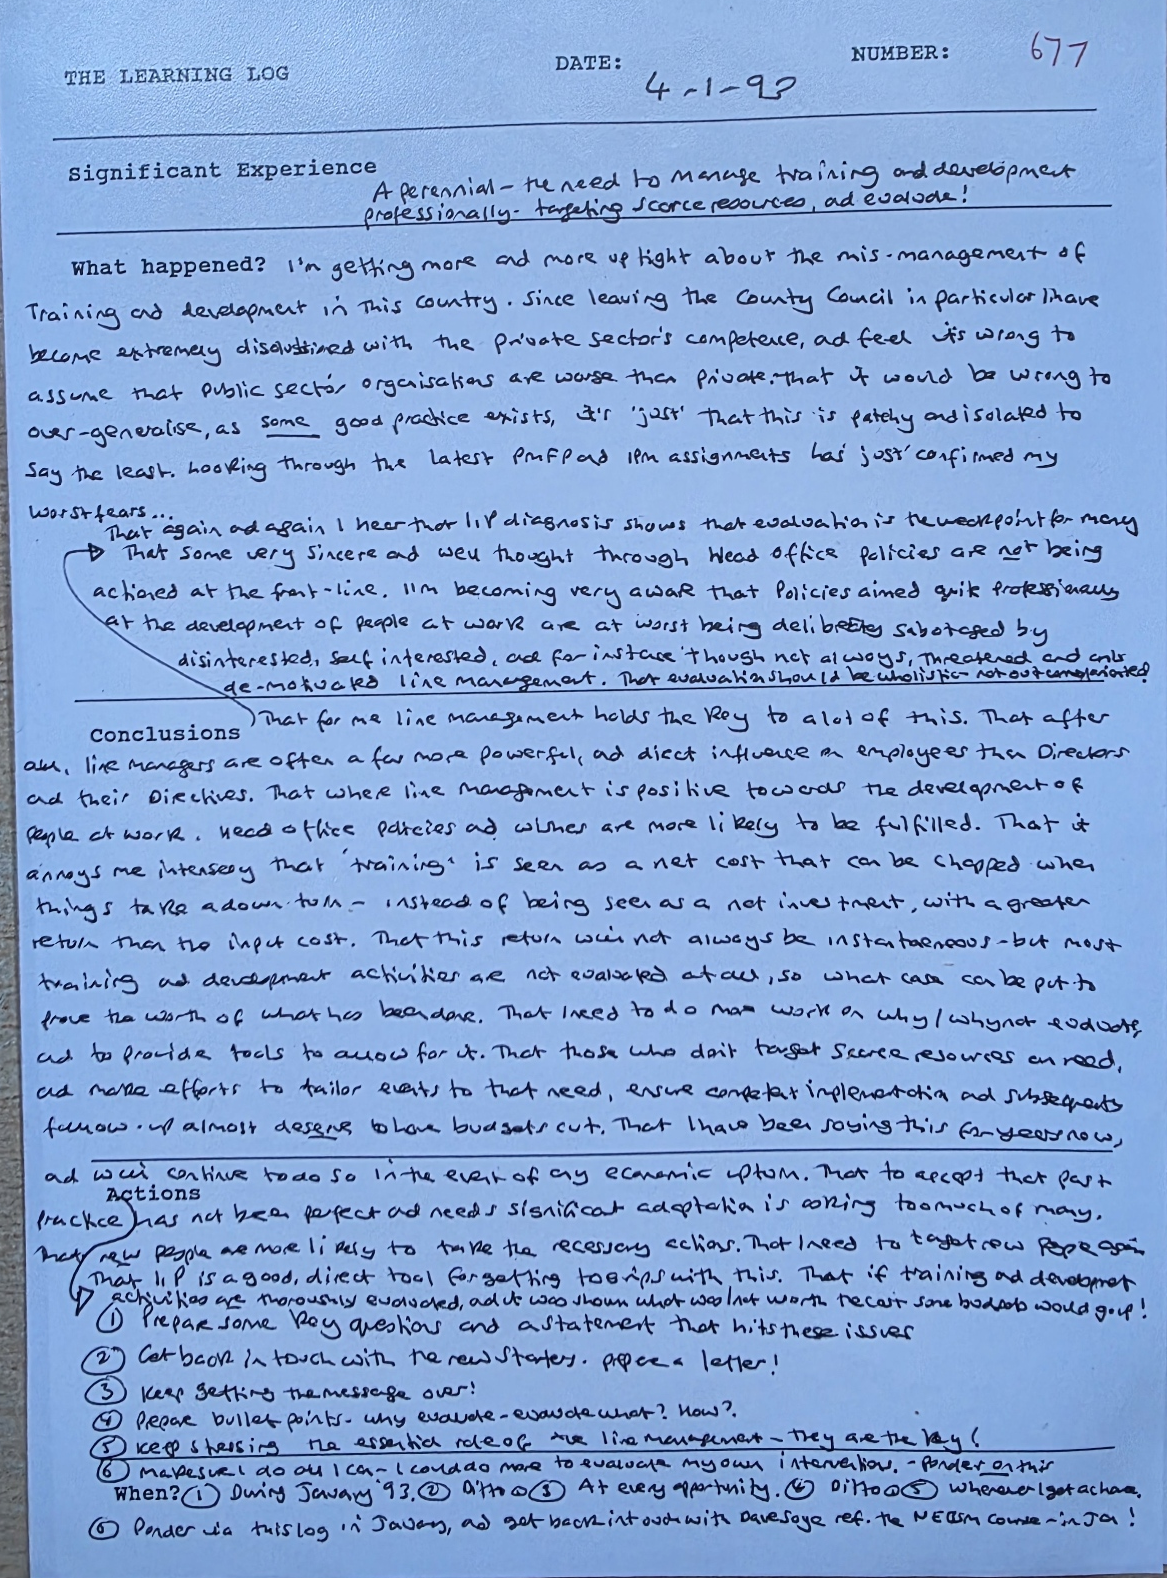 THE LEARNING LOG
DATE: 4-1-93
NUMBER: 677
Significant Experience
A perennial - the need to manage training and development
professionally - targeting scarce resources, ad evaluate!
What happened? I'm getting more and more up tight about the mis-management of
Training and development in this country. Since leaving the County Council in particular I have
become extremely disolutioned with the private sector's competence, ad feel its wrong to
assume that public sector organisations are worse than private. That it would be wrong to
over-generalise, as some good practice exists, it's 'just' that this is patchy and isolated to
say the least. Looking through the latest PMFP and IPM assignments has 'just' confirmed my
worst fears...
That again ad again I hear that IIP diagnosis shows that evaluation is the weak point for many
That some very sincere and well thought through Head Office policies are not being
actioned at the front-line. I'm becoming very aware that Policies aimed quite professionally
at the development of people at work are at worst being deliberately sabotaged by
disinterested, self interested, ad for instance though not always, threatened and
de-motivated line management. That evaluation should be wholistic not
Conclusions
That for me line management holds the key to a lot of this. That after
all, line managers are often a far more powerful, ad direct influence on employees than Directors
ad their Directives. That where line management is positive towards the development of
people at work. Head office policies ad wishes are more likely to be fulfilled. That it
annoys me intensely that 'training' is seen as a net cost that can be chopped when
things take a down-turn - instead of being seen as a net investment, with a greater
return than the input cost. That this return will not always be instantaneous - but most
training ad development activities are not evaluated at all, so what case can be put to
prove the worth of what has been done. That I need to do more work on why/why not evaluate,
ad to provide tools to allow for it. That those who don't target scarce resources on need,
ad make efforts to tailor events to that need, ensure competent implementation ad subsequent
follow-up almost deserve to have budgets cut. That I have been saying this for years now,
ad will continue to do so in the event of any economic upturn. That to accept that past
Actions
practice has not been perfect ad needs significant adaptation is asking too much of many.
That new people are more likely to take the necessary actions. That I need to target new people again
That IIP is a good, direct tool for getting to grips with this. That if training ad development
activities are thoroughly evaluated, ad it was shown what was/not worth the cost some budgets would go up!
① Prepare some key questions and a statement that hits these issues
② Get back in touch with the new starters. prepare a letter!
③ Keep getting the message over!
④ Prepare bullet points - why evaluate - evaluate what? How?.
⑤ Keep stressing the essential role of the line management - they are the key!
⑥ Make sure I do all I can - I could do more to evaluate my own interventions. - Ponder on this
When? ① During January '93. ② Ditto ③ At every opportunity. ④ Ditto ⑤ Whenever I get a chance.
⑥ Ponder via this log in January, ad get back in touch with Dave ref. the course - in Jan!